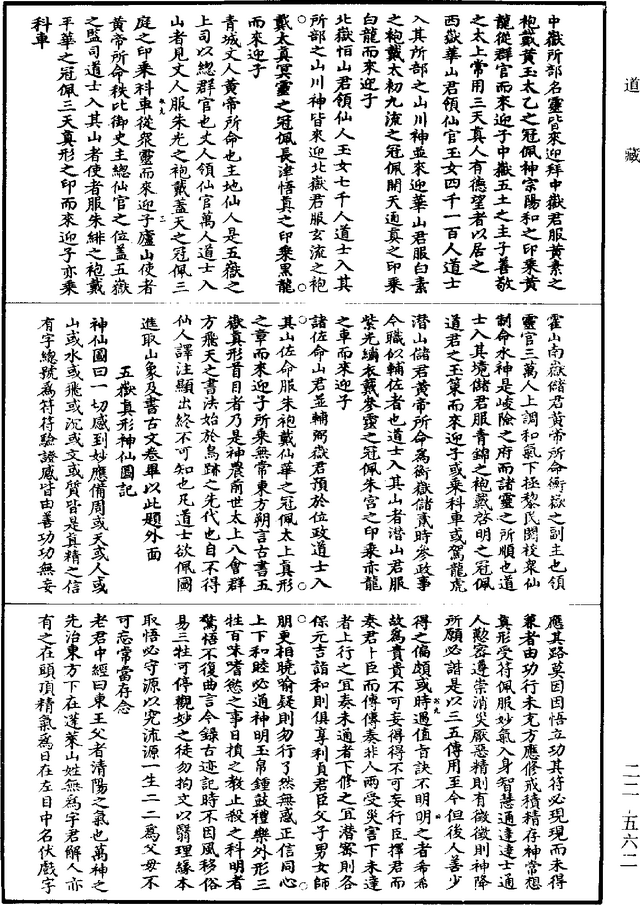 中嶽所部名靈皆來迎拜中嶽君服黃素之
袍戴黃玉太乙之冠佩神宗陽和之印乘黃
龍從群官而來迎子中嶽五土之主子善敬
之太上常用三天真人有德望者以居之
西嶽華山君領仙官玉女四千一百人道士
入其所部之山川神並來迎華山君服白素
之袍戴太初九流之冠佩開天通真之印乘
白龍而來迎子
北嶽恒山君領仙人玉女七千人道士入其
所部之山川神皆來迎北嶽君服玄流之袍
戴太真冥靈之冠佩長津悟真之印乘黑龍
而來迎子
青城丈人黃帝所命也主地仙人是五嶽之
上司以總群官也丈人領仙官萬人道士入
山者見丈人服朱光之袍戴蓋天之冠佩三
庭之印乘科車從衆靈而來迎子廬山使者
黃帝所命秩比御史主總仙官之位蓋五嶽
之監司道士入其山者使者服朱緋之袍戴
平華之冠佩三天真形之印而來迎子亦乘
科車
霍山南嶽儲君黃帝所命衡嶽之副主也領
靈官三萬人上調和氣下拯黎民閱校衆仙
制命水神是峻險之府而諸靈之所順也道
士入其境儲君服青錦之袍戴啓明之冠佩
道君之玉策而來迎子或乘科車或駕龍虎
潛山儲君黃帝所命為衡嶽儲貳時參政事
今職似輔佐者也道士入其山者潛山君服
紫光繡衣戴參靈之冠佩朱宮之印乘赤龍
之車而來迎子
諸佐命山君並輔弼嶽君預於位政道士入
其山佐命服朱袍戴仙華之冠佩太上真形
之章而來迎子所乘無常東方朔言古書五
嶽真形首目者乃是神農前世太上八會群
方飛天之書法始於鳥跡之先代也自不得
仙人譯注顯出終不可知也凡道士欲佩圖
進取山象及書古文卷畢以此題外面
五嶽真形神仙圖記
神仙圖曰一切感到妙應備周或天或人或
山或水或飛或沉或文或質皆是真精之信
有字總號為符符驗證感皆由善功功無妄
應其路莫因因悟立功其符必現現而未得
策者由功行未充方應修戒積精存神常想
真形受符佩服妙氣入身智慧通達達士通
人懃容遵崇消災厭惡精則有徵徵則神降
所願必諧是以三五傳用至今但後人善少
得之偏頗或時遇值旨訣不明明之者希希
故為貴貴不可妄得得不可妄行臣擇君而
奏君卜臣而傳傳奏非人兩受災害下未達
者上行之宜奏未通者下修之宜潛審則各
保元吉諧和則俱享利貞君臣父子男女師
朋更相曉喻疑則勿行了然無惑正信同心
上下和睦必通神明玉帛鍾鼓禮樂外形三
牲百味嗜慾之事日損之教止殺之科明者
驚悟不復曲言今錄古迹記時不因風移俗
易三牲可停觀妙之徒勿拘文以翳理緣本
取悟必守源以究流源一生二二為父母不
可忘常當存念
老君中經曰東王父者清陽之氣也萬神之
先治東方下在蓬萊山姓無為字君解人亦
有之在頭頂精氣為日在左目中名伏戲字
道藏
二二一·五六二